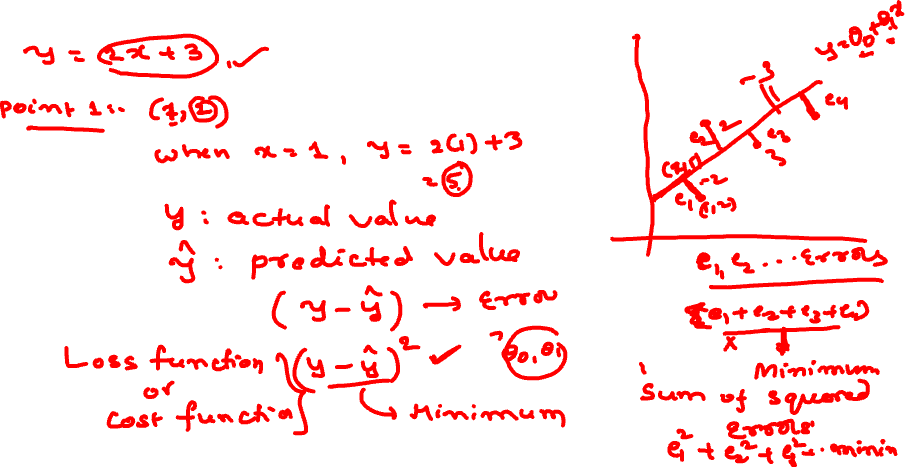 y = 2x + 3
Point 1 :- (1, 2)
when x = 1, y = 2(1) + 3
= 5
y : actual value
ŷ : predicted value
(y - ŷ) → Error
Loss function (y - ŷ)² θ₀, θ₁
or
cost function → Minimum
y = θ₀ + θ₁x
-3
e₄
e₂ 2
e₃
3
-2
e₁ (1,2)
e₁, e₂ ... Errors
e₁ + e₂ + e₃ + e₄)
x
Minimum
Sum of squared
Errors
e₁² + e₂² + e₃² .. minin